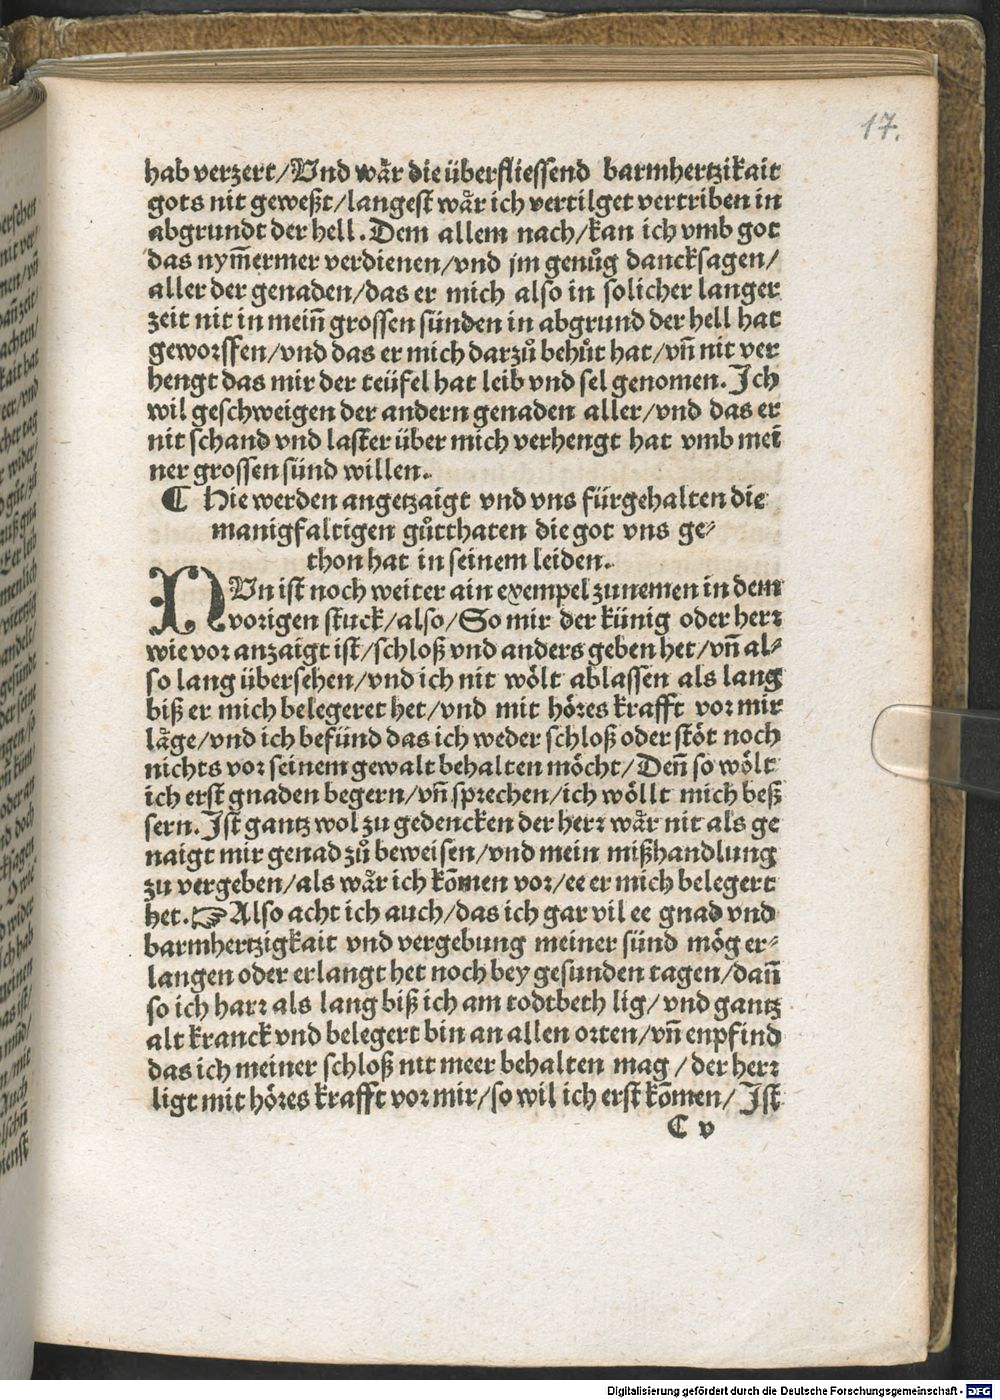 17.
hab verzert/Vnd wår die überfliessend barmhertzikait
gots nit geweßt/langest wår ich vertilget vertriben in
abgrundt der hell. Dem allem nach/kan ich vmb got
das nym̃ermer verdienen/vnd jm genůg dancksagen/
aller der genaden/das er mich also in solicher langer
zeit nit in mein̄ grossen sünden in abgrund der hell hat
geworffen/vnd das er mich darzů behůt hat/vn̄ nit ver
hengt das mir der teüfel hat leib vnd sel genomen. Ich
wil geschweigen der andern genaden aller/vnd das er
nit schand vnd laster über mich verhengt hat vmb mei
ner grossen sünd willen.
¶ Hie werden angetzaigt vnd vns fürgehalten die
manigfaltigen gůtthaten die got vns ge⸗
thon hat in seinem leiden.
NVn ist noch weiter ain exempel zunemen in dem
vorigen stuck/also/So mir der künig oder herr
wie vor anzaigt ist/schloß vnd anders geben het/vn̄ al⸗
so lang übersehen/vnd ich nit wölt ablassen als lang
biß er mich belegeret het/vnd mit höres krafft vor mir
låge/vnd ich befünd das ich weder schloß oder stöt noch
nichts vor seinem gewalt behalten möcht/Den̄ so wölt
ich erst gnaden begern/vn̄ sprechen/ich wöllt mich beß
sern. Ist gantz wol zu gedencken der herr wår nit als ge
naigt mir genad zů beweisen/vnd mein mißhandlung
zu vergeben/als wår ich kōmen vor/ee er mich belegert
het.☞Also acht ich auch/das ich gar vil ee gnad vnd
barmhertzigkait vnd vergebung meiner sünd mög er⸗
langen oder erlangt het noch bey gesunden tagen/dan̄
so ich harr als lang biß ich am todtbeth lig/vnd gantz
alt kranck vnd belegert bin an allen orten/vn̄ enpfind
das ich meiner schloß nit meer behalten mag/der herr
ligt mit höres krafft vor mir/so wil ich erst kōmen/Ist
C v
Digitalisierung gefördert durch die Deutsche Forschungsgemeinschaft - DFG